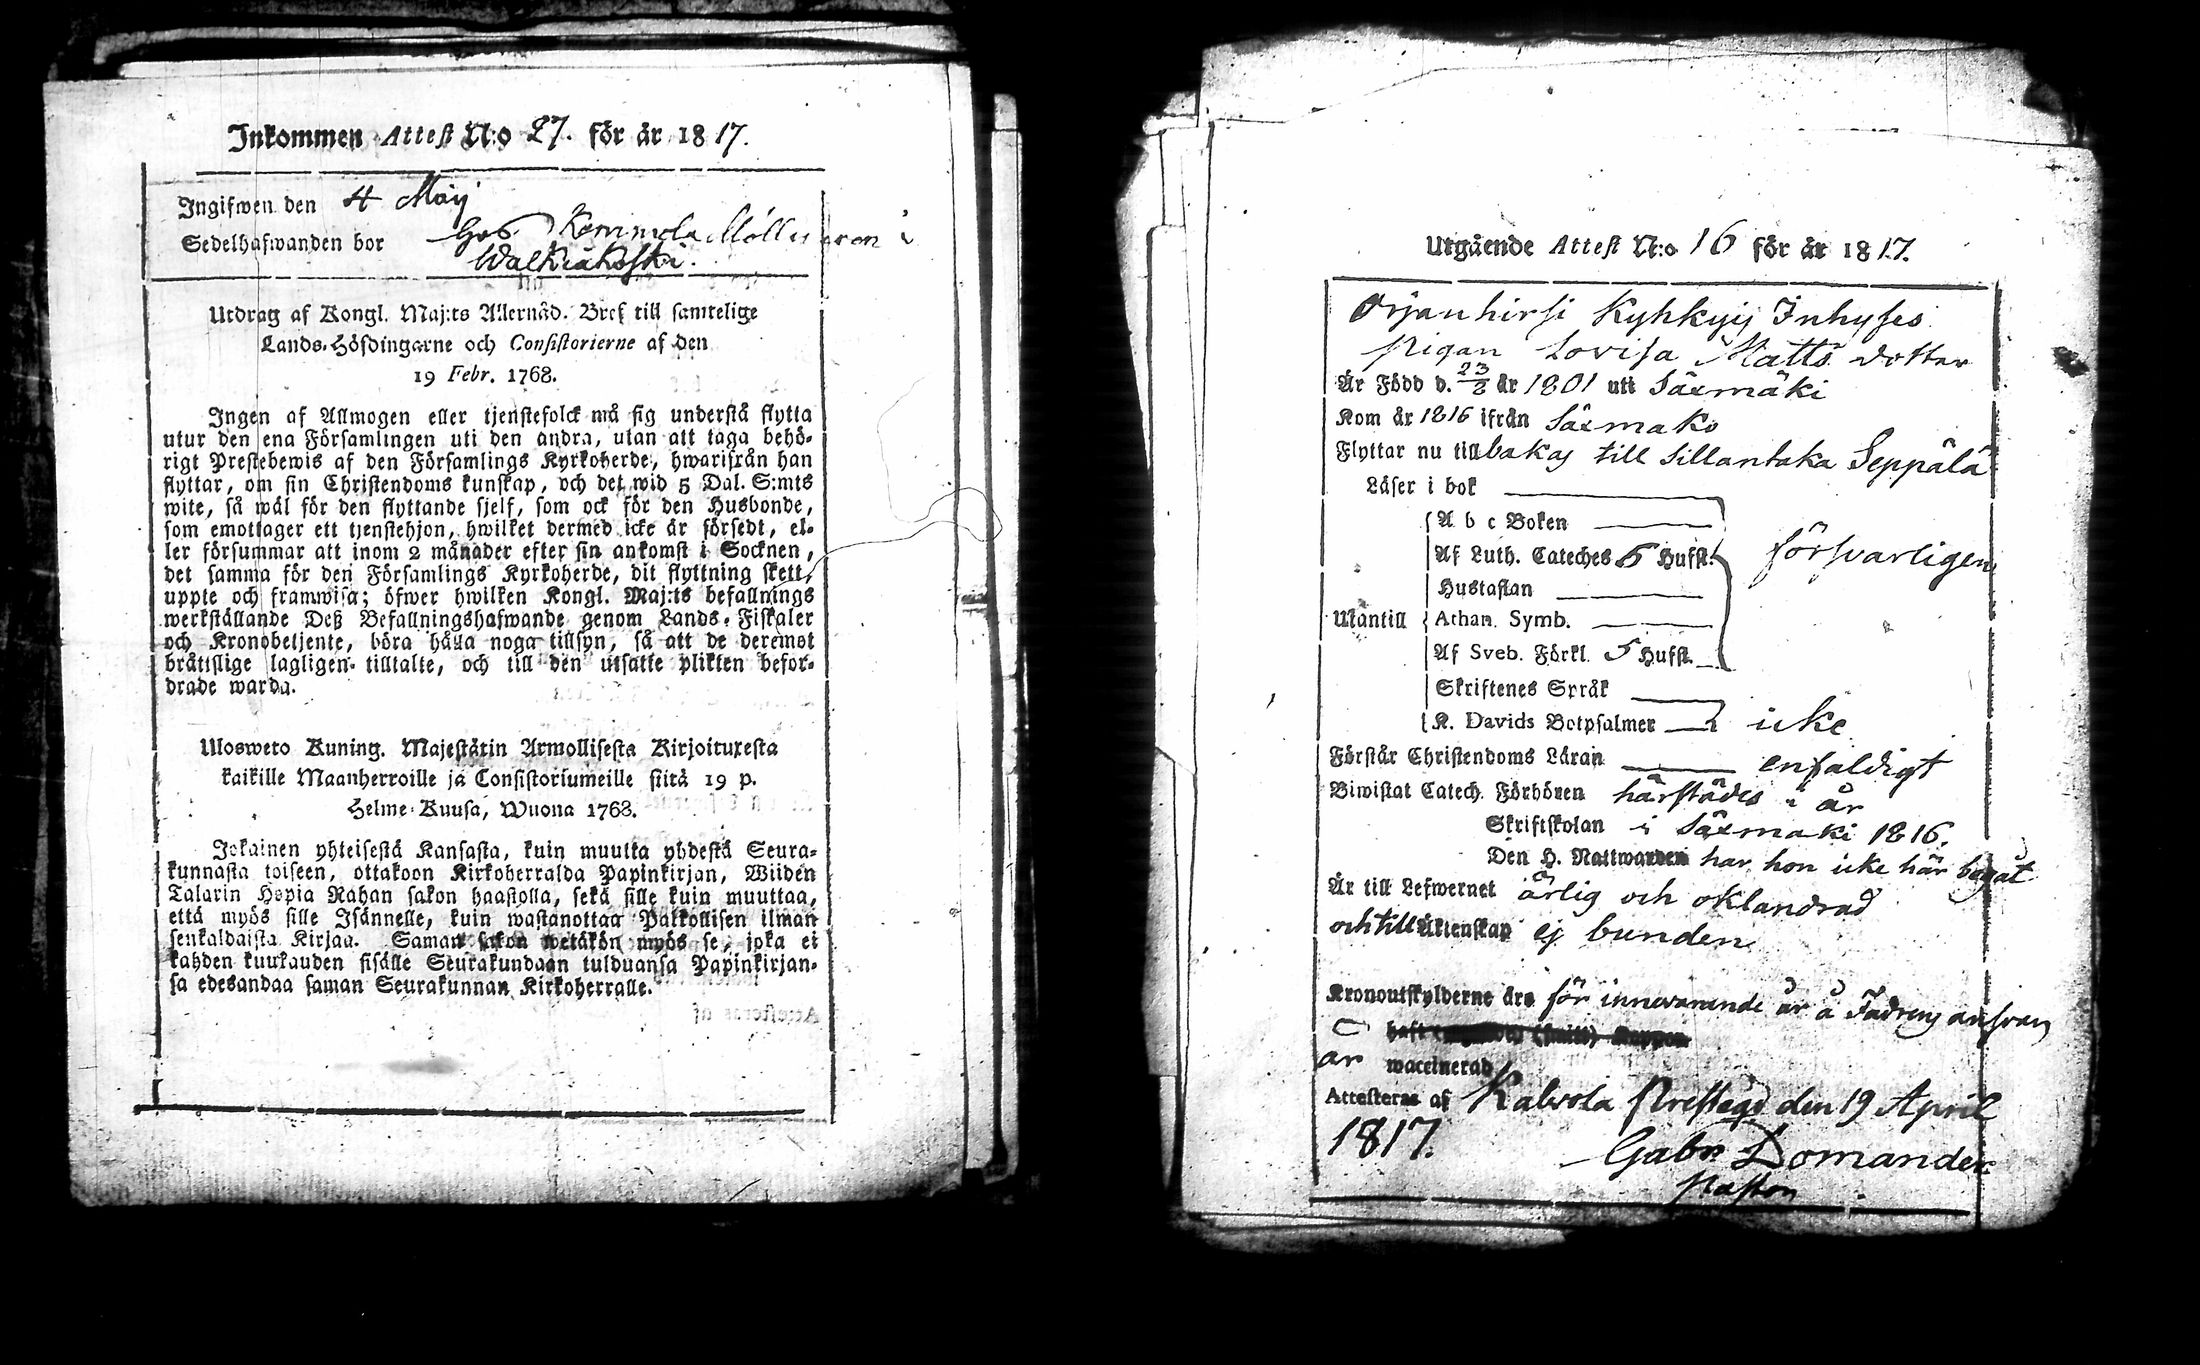 Inkommen Attest N:o 27. för år 1817.
Ingifwen den 4 Maij
Sedelhafwanden bor hos Kemmola Möllnaren i
Walkiakoski.
Utdrag af Kongl. Maj:ts Allernåd. Bref till samtelige
Lands-Höfdingarne och Consistorierne af den
19 Febr. 1768.
Ingen af Allmogen eller tjenstefolck må sig understå flytta
utur den ena Församlingen uti den andra, utan att taga behö-
rigt Prestebewis af den Församlings Kyrkoherde, hwarifrån han
flyttar, om sin Christendoms kunskap, och det wid 5 Dal. S:mts
wite, så wäl för den flyttande sjelf, som ock för den Husbonde,
som emottager ett tjenstehjon, hwilket dermed icke är försedt, el-
ler försummar att inom 2 månader efter sin ankomst i Socknen,
det samma för den Församlings Kyrkoherde, dit flyttning skett,
uppte och framwisa; öfwer hwilken Kongl. Maj:ts befallnings
werkställande Deß Befallningshafwande genom Lands-Fiskaler
och Kronobetjente, böra hålla noga tillsyn, så att de deremot
bråttslige lagligen tilltalte, och till den utsatte plikten befor-
drade warda.
Ulosweto Kuning. Majestätin Armollisesta Kirjoituxesta
kaikille Maanherroille ja Consistoriumeille siitä 19 p.
Helme-Kuusa, Wuona 1768.
Jokainen yhteisestä Kansasta, kuin muutta yhdestä Seura-
kunnasta toiseen, ottakoon Kirkoherralda Papinkirjan, Wiiden
Talarin Hopia Rahan sakon haastolla, sekä sille kuin muuttaa,
että myös sille Isännelle, kuin wastanottaa Palkollisen ilman
senkaldaista Kirjaa. Saman sakon wetäkön myös se, joka ei
kahden kuukauden sisälle Seurakundaan tulduansa Papinkirjan-
sa edesandaa saman Seurakunnan Kirkoherralle.
Utgående Attest N:o 16 för år 1817.
Orjanhirsi Kyhkyij Inhyses
pigan Lovisa Matts dotter
Är Född d. 23/2 år 1801 uti Säxmäki
Kom år 1816 ifrån Säxmäki
Flyttar nu tillbakas till Sillantaka Seppälä
Läser i bok
A b c Boken
Af Luth. Cateches 5 Hufst. försvarligen
Hustaflan
Utantill Athan. Symb.
Af Sveb. Förkl. 5 Hufst.
Skriftenes Språk
K. Davids Botpsalmer icke
Förstår Christendoms Läran enfaldigt
Biwistat Catech. Förhören härstädes i år
Skriftskolan i Säxmäki 1816.
Den H. Nattwarden har hon icke här begåt
Är till Lefwernet ärlig och oklandrad
och till Äktenskap ej bunden
Kronoutskylderne äro för innevarande år å Fadrens ansvar
haft Koppor
är waccinerad
Attesteras af Kalvola Prestegd den 19 April
1817. Gabr. Domander
Pastor